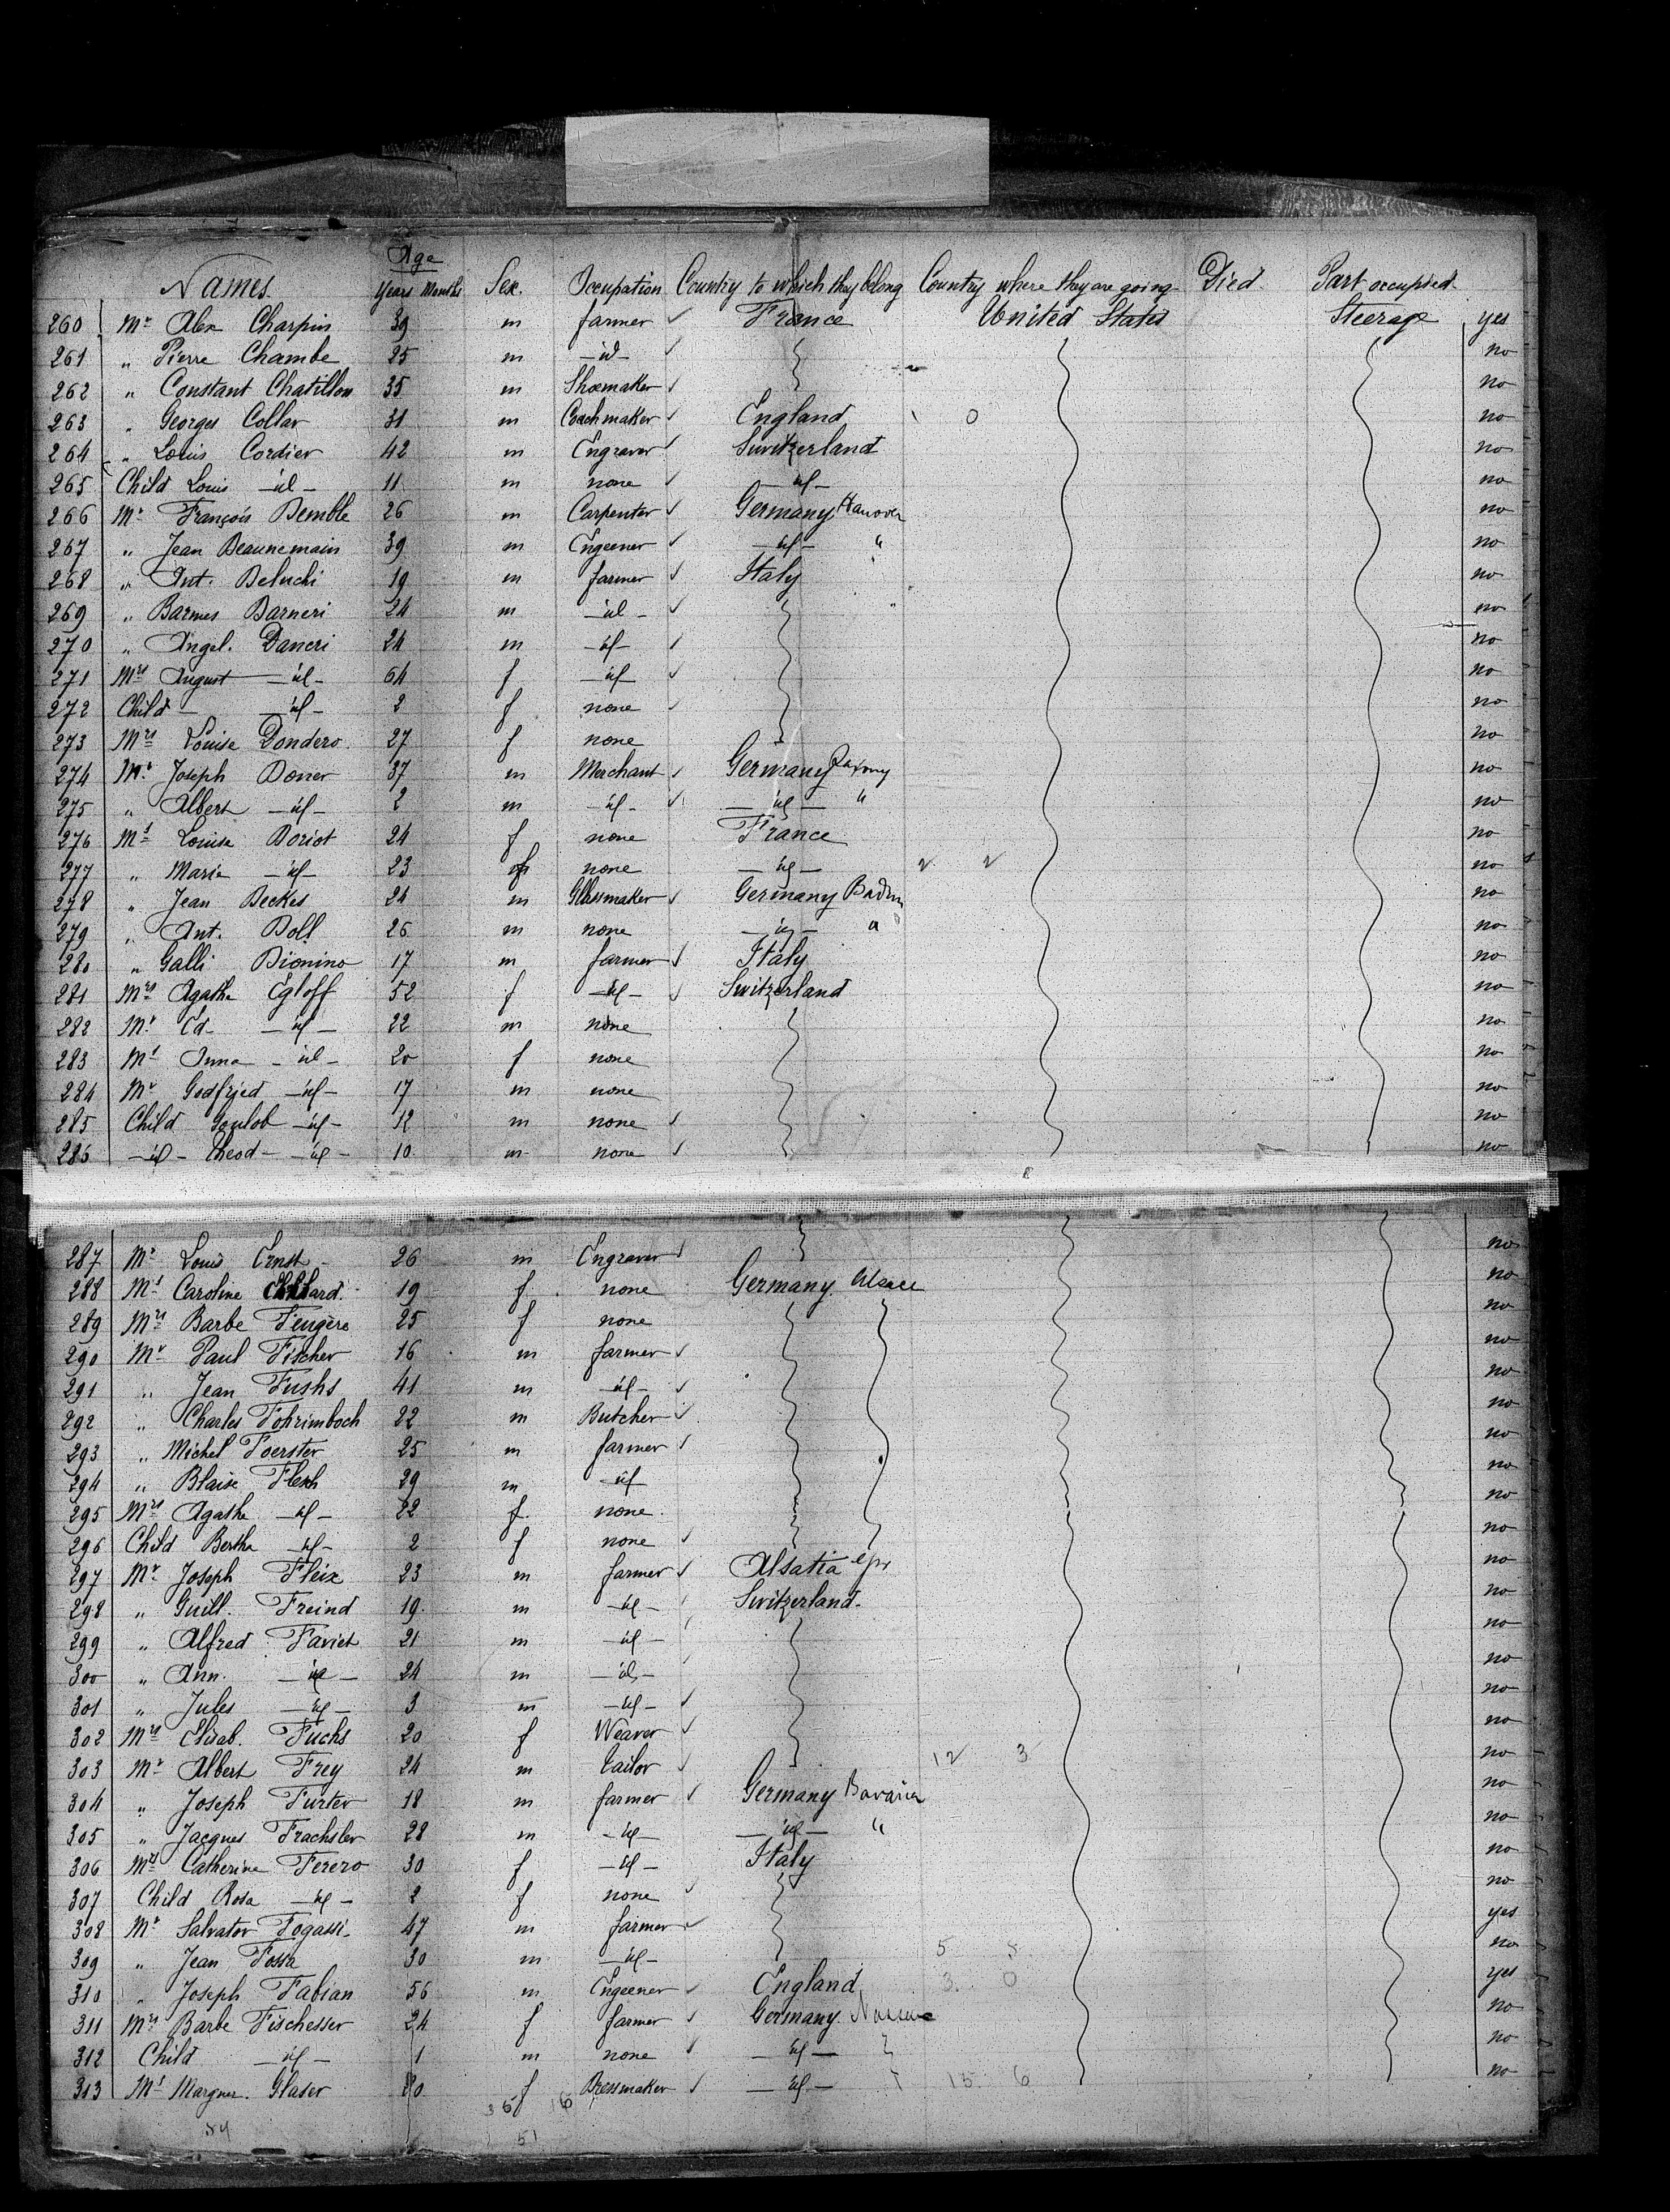 Age
Names. Years Months Sex. Occupation Country to which they belong Country where they are going Died. Part occupied.
260 Mr Alex Charpin 39 m farmer France United States Steerage yes
261 " Pierre Chambe 25 m -id- no
262 " Constant Chatillon 35 m Shoemaker no
263 " Georges Collar 31 m Coachmaker England 1 0 no
264 " Louis Cordier 42 m Engraver Switzerland no
265 Child Louis -id- 11 m none -id- no
266 Mr François Demble 26 m Carpenter Germany Hanover no
267 " Jean Beaunemain 39 m Engeener -id- " no
268 " Ant. Beluchi 19 m farmer Italy no
269 " Barmes Barneri 24 m -id- no
270 " Angel. Daneri 24 m -id- no
271 Mrs August -id- 64 f -id- no
272 Child - -id- 2 f none no
273 Mrs Louise Dondero. 27 f none no
274 Mr Joseph Doner 37 m Merchant Germany Saxony no
275 " Albert -id- 2 m -id- -id- " no
276 Ms Louise Doriot 24 f none France no
277 " Marie -id- 23 f none -id- 2 2 no
278 " Jean Beckes 24 m Glassmaker Germany Baden no
279 " Ant. Doll 26 m none -id- " no
280 " Galli Dionino 17 m farmer Italy no
281 Mrs Agathe Egloff 52 f -id- Switzerland no
282 Mr Ed- -id- 22 m none no
283 Ms Anna -id- 20 f none no
284 Mr Godfried -id- 17 m none no
285 Child Goulob -id- 12 m none no
286 -id- Theod- -id- 10 m none no
287 Mr Louis Ernst 26 m Engraver no
288 Ms Caroline 19 f none Germany Alsace no
289 Mrs Barbe Feugère 25 f none no
290 Mr Paul Fischer 16 m farmer no
291 " Jean Fushs 41 m -id- no
292 " Charles Fohrimboch 22 m Butcher no
293 " Michel Foerster 25 m farmer no
294 " Blaise Flesh 29 m -id- no
295 Mrs Agathe -id- 22 f none no
296 Child Bertha -id- 2 f none no
297 Mr Joseph Fleix 23 m farmer Alsatia no
298 " Guill. Freind 19 m -id- Switzerland no
299 " Alfred Favict 21 m -id- no
300 " Ann. -id- 24 m -id- no
301 " Jules -id- 3 m -id- no
302 Mrs Elisab. Fuchs 20 f Weaver no
303 Mr Albert Frey 24 m tailor 12 3 no
304 " Joseph Furter 18 m farmer Germany Bavaria no
305 " Jacques Frachsler 28 m -id- -id- " no
306 Mrs Catherine Ferero 30 f -id- Italy no
307 Child Rosa -id- 2 f none no
308 Mr Salvator Fogassi 47 m farmer yes
309 " Jean Fossa 30 m -id- 5 no
310 " Joseph Fabian 56 m Engeener England 3. 0 yes
311 Mrs Barbe Fischesser 24 f farmer Germany Nassau no
312 Child -id- 1 m none -id- no
313 Ms Marguer. Glaser 20 f Dressmaker -id- 15 6 no
36 16
54 51